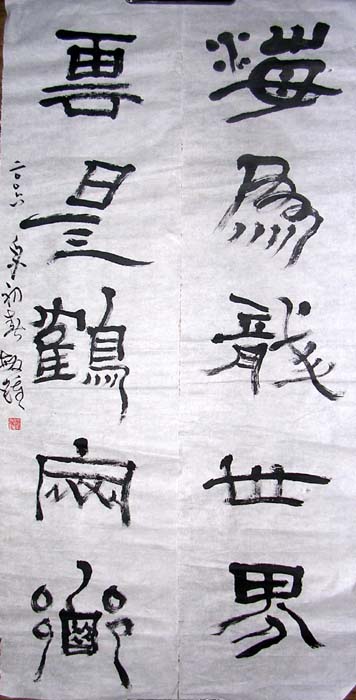 海為龍世界
雲是鶴家鄉
二〇〇六年初春